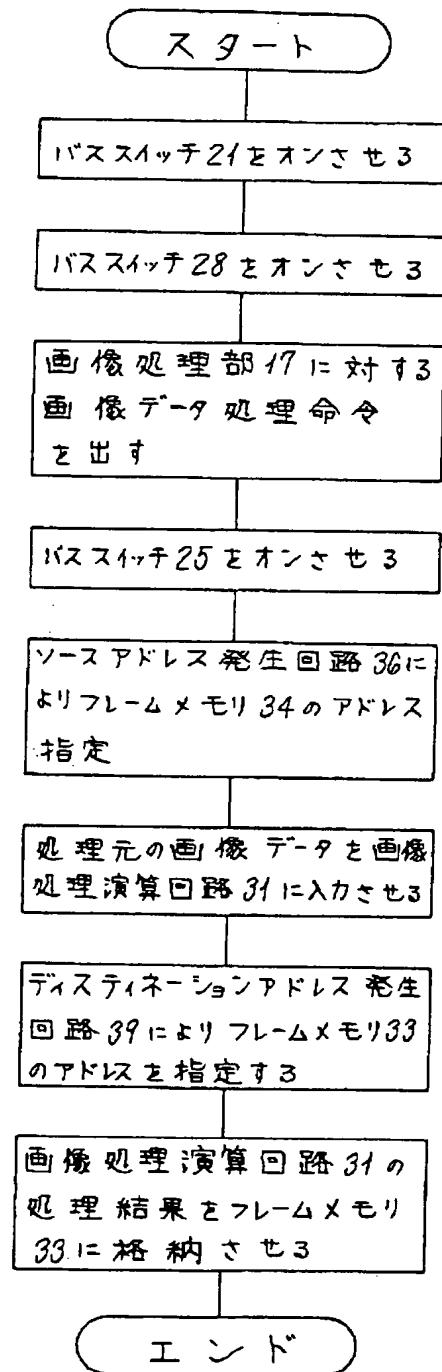 スタート
バススイッチ21をオンさせる
バススイッチ28をオンさせる
画像処理部17に対する
画像データ処理命令
を出す
バススイッチ25をオンさせる
ソースアドレス発生回路36に
よりフレームメモリ34のアドレス
指定
処理元の画像データを画像
処理演算回路31に入力させる
ディスティネーションアドレス発生
回路39によりフレームメモリ33
のアドレスを指定する
画像処理演算回路31の
処理結果をフレームメモリ
33に格納させる
エンド